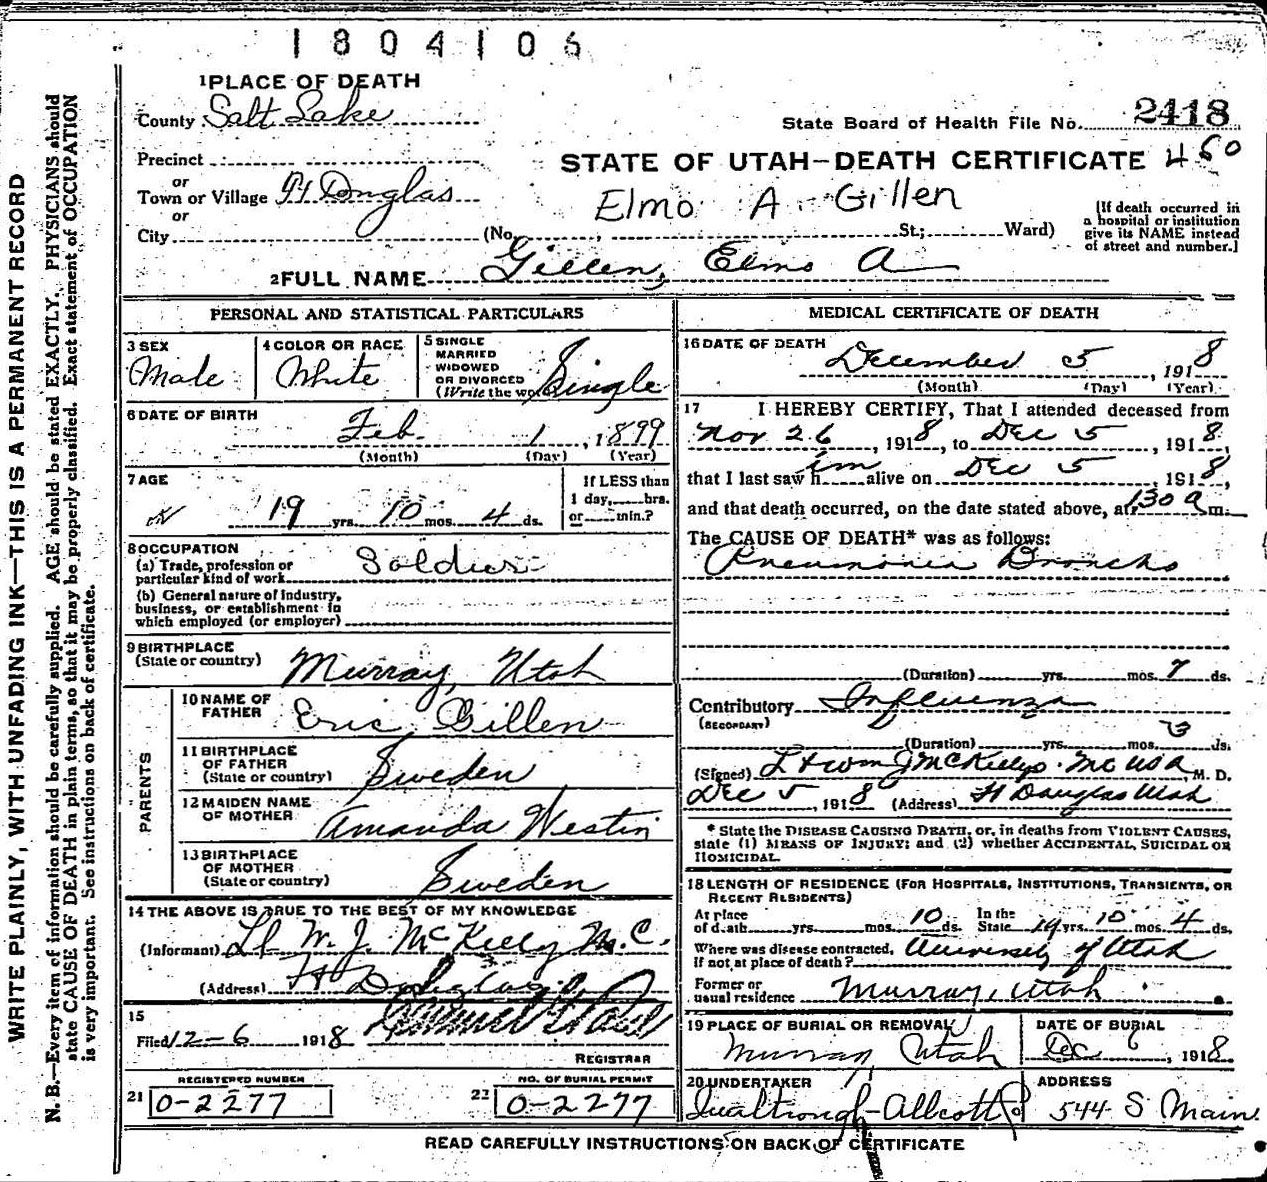 1804106
1 PLACE OF DEATH
County Salt Lake
State Board of Health File No. 2418
Precinct
STATE OF UTAH—DEATH CERTIFICATE 450
or
Town or Village Ft Douglas
Elmo A. Gillen
or
City (No. , St.; Ward)
[If death occurred in
a hospital or institution
give its NAME instead
of street and number.]
2 FULL NAME Gillen, Elmo A
PERSONAL AND STATISTICAL PARTICULARS
3 SEX
Male
4 COLOR OR RACE
White
5 SINGLE
MARRIED
WIDOWED
OR DIVORCED
(Write the wo
Single
6 DATE OF BIRTH
Feb. 1, 1899
(Month) (Day) (Year)
7 AGE
19 yrs. 10 mos. 4 ds.
If LESS than
1 day, hrs.
or min.?
8 OCCUPATION
(a) Trade, profession or
particular kind of work Soldier
(b) General nature of industry,
business, or establishment in
which employed (or employer)
9 BIRTHPLACE
(State or country) Murray, Utah
PARENTS
10 NAME OF
FATHER Eric Gillen
11 BIRTHPLACE
OF FATHER
(State or country) Sweden
12 MAIDEN NAME
OF MOTHER Amanda Westin
13 BIRTHPLACE
OF MOTHER
(State or country) Sweden
14 THE ABOVE IS TRUE TO THE BEST OF MY KNOWLEDGE
(Informant) Lt W. J. McKelly M.C.
(Address) Ft Douglas
15
Filed 12-6 1918
REGISTRAR
REGISTERED NUMBER
21 0-2277
NO. OF BURIAL PERMIT
22 0-2277
MEDICAL CERTIFICATE OF DEATH
16 DATE OF DEATH
December 5, 1918
(Month) (Day) (Year)
17 I HEREBY CERTIFY, That I attended deceased from
Nov 26, 1918, to Dec 5, 1918,
that I last saw him alive on Dec 5, 1918,
and that death occurred, on the date stated above, at 130 a m.
The CAUSE OF DEATH* was as follows:
Pneumonia Broncho
(Duration) yrs. mos. 7 ds.
Contributory Influenza
(SECONDARY)
(Duration) yrs. mos. 3 ds.
(Signed) Lt Wm J McKelly. MC USA M. D.
Dec 5, 1918 (Address) Ft Douglas Utah
* State the DISEASE CAUSING DEATH, or, in deaths from VIOLENT CAUSES,
state (1) MEANS OF INJURY; and (2) whether ACCIDENTAL, SUICIDAL OR
HOMICIDAL.
18 LENGTH OF RESIDENCE (FOR HOSPITALS, INSTITUTIONS, TRANSIENTS, OR
RECENT RESIDENTS)
At place of death yrs. mos. 10 ds. In the State 19 yrs. 10 mos. 4 ds.
Where was disease contracted,
If not at place of death? University of Utah
Former or
usual residence Murray, Utah
19 PLACE OF BURIAL OR REMOVAL
Murray Utah
DATE OF BURIAL
Dec 6, 1918
20 UNDERTAKER
ADDRESS
544 S Main
READ CAREFULLY INSTRUCTIONS ON BACK OF CERTIFICATE
WRITE PLAINLY, WITH UNFADING INK—THIS IS A PERMANENT RECORD
N. B.—Every item of information should be carefully supplied. AGE should be stated EXACTLY. PHYSICIANS should
state CAUSE OF DEATH in plain terms, so that it may be properly classified. Exact statement of OCCUPATION
is very important. See instructions on back of certificate.